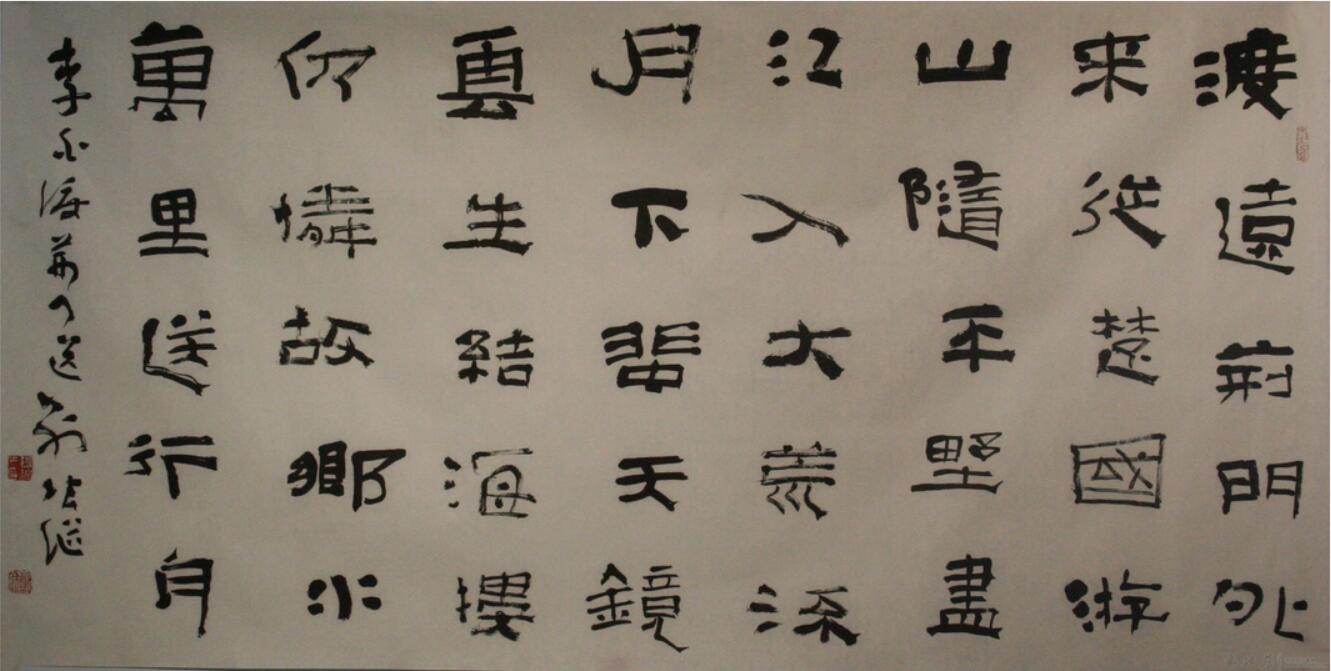 渡遠荊門外
来從楚國游
山隨平墅盡
江入大荒流
月下蜚天鏡
雲生結海摟
仍憐故鄉水
萬里送行舟
李白渡荊門送別